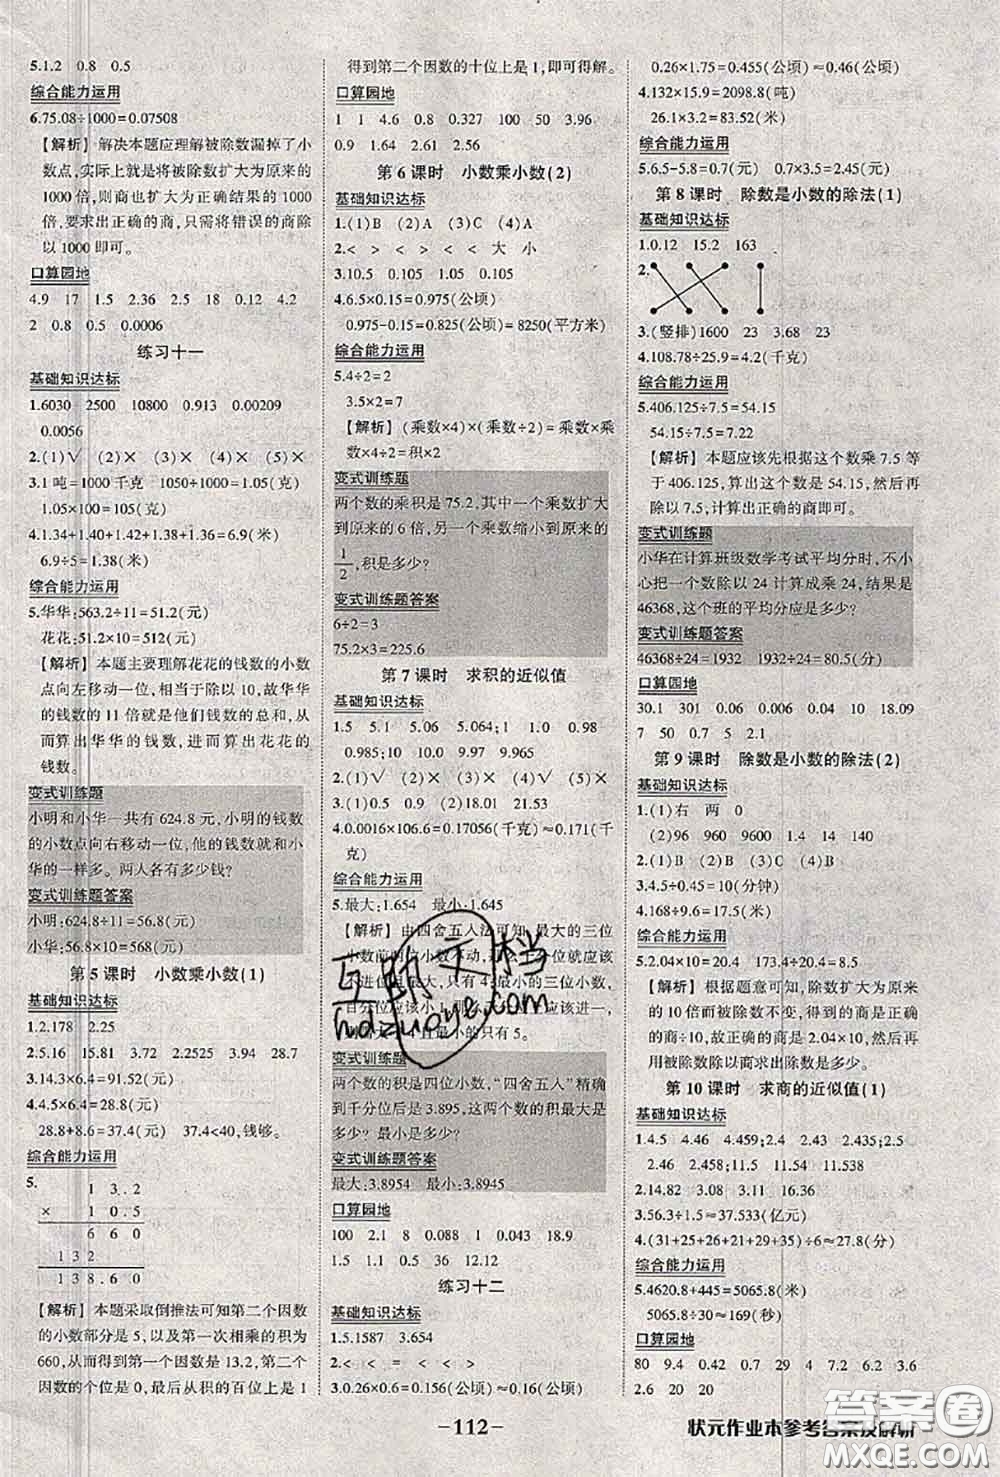 5.1.2 0.8 0.5
综合能力运用
6.75.08÷1000=0.07508
【解析】 解决本题应理解被除数漏掉了小
数点,实际上就是将被除数扩大为原来的
1000 倍,则商也扩大为正确的商的 1000
倍,要求出正确的商,只需将错误的商除
以 1000 即可。
口算园地
4.9 17 1.5 2.36 2.5 18 0.12 4.2
2 0.8 0.5 0.0006
练习十一
基础知识达标
1.6030 2500 10800 0.913 0.00209
0.0056
2.(1)√ (2)× (3)√ (4)× (5)×
3.1 吨=1000 千克 1050÷1000=1.05
1.05×100=105(克)
4.1.34+1.40+1.42+1.38+1.36=6.9(米)
6.9÷5=1.38(米)
综合能力运用
5.华华:563.2÷11=51.2(元)
花花:51.2×10=512(元)
【解析】本题主要理解花花的钱数的小数
点向左移动一位,相当于除以 10,故华华
的钱数的 11 倍就是他们钱数的总和,从
而算出华华的钱数,进而算出花花的
钱数。
变式训练题
小明和小华一共有 624.8 元,小明的钱数
的小数点向右移动一位,他的钱数就和小
华的一样多。两人各有多少钱?
变式训练题答案
小明:624.8÷11=56.8(元)
小华:56.8×10=568(元)
第 5 课时 小数乘小数(1)
基础知识达标
1.2.178 2.25
2.5.16 15.81 3.72 0.2925 3.94 28.7
3.14.3×6.4=91.52(元)
4.4.5×6.4=28.8(元)
28.8+8.6=37.4(元) 37.4<40,钱够。
综合能力运用
5.
1 3.2
× 1 0.5
6 6 0
1 3 2
1 3 8.6 0
【解析】本题采取倒推法可知第二个因数
的小数部分是 5,以及第一次乘得的积为
660,从而得到第一个因数是 13.2,第二个
因数的个位是 0,最后从积的百位上是 1
得到第二个因数的十位上是 1,即可得解。
口算园地
1 1 4.6 0.8 0.327 100 50 3.96
0.9 1.64 2.28 2.56
第 6 课时 小数乘小数(2)
基础知识达标
1.(1)C (2)A (3)C (4)A
2.< > < < < < 大 小
3.10.5 0.105 1.05 0.105
4.6.5×0.15=0.975(公顷)
0.975-0.15=0.825(公顷)=8250(平方米)
综合能力运用
5.4÷2=2
3.5×2=7
【解析】(乘数×4)×(乘数÷2)=乘数×乘
数×4÷2=积×2
变式训练题
两个数的乘积是 75.2,其中一个乘数扩大
到原来的 6 倍,另一个乘数缩小到原来的
1/2,积是多少?
变式训练题答案
6÷2=3
75.2×3=225.6
第 7 课时 求积的近似值
基础知识达标
1.5 5.1 5.06 5.064;1 0.5 10
10.0 10.02 9.995
2.(1)√ (2)× (3)√ (4)×
3.(1)0.5 0.9 (2)18.01 21.53
4.0.0016×106.6=0.17056(千克)≈0.171(千
克)
综合能力运用
5.最大:1.654 最小:1.645
【解析】 由四舍五入法可知,最大的三位
变式训练题
两个数的积是四位小数,“四舍五入”精确
到千分位后是 3.895,这两个数的积最大是
多少? 最小是多少?
变式训练题答案
最大:3.8954 最小:3.8945
口算园地
100 2.1 8 0.088 1 0.043 18.9
1.25 0.51 0.5 36 12.12
练习十二
基础知识达标
1.5.1587 3.654
2.< < = < > <
3.0.26×0.6=0.156(公顷)≈0.16(公顷)
0.26×1.75=0.455(公顷)≈0.46(公顷)
4.132×15.9=2098.8(吨)
26.1×3.2=83.52(米)
综合能力运用
5.6.5-5.8=0.7(元) 0.7×3.5=2.45(元)
第 8 课时 除数是小数的除法(1)
基础知识达标
1.0.12 15.2 163
2.
3.(竖排)1600 23 3.68 23
4.108.78÷25.9=4.2(千克)
综合能力运用
5.406.125÷7.5=54.15
54.15÷7.5=7.22
【解析】本题应该先根据这个数乘 7.5 等
于 406.125,算出这个数是 54.15,然后除
以 7.5,计算出正确的商即可。
变式训练题
小华在计算班级数学考试平均分时,不小
心把一个数除以 24 计算成乘 24,结果是
46368,这个班的平均分应是多少?
变式训练题答案
46368÷24=1932 1932÷24=80.5(分)
口算园地
30.1 301 0.06 0.006 4 10 18.09
7 50 0.7 5 2.1
第 9 课时 除数是小数的除法(2)
基础知识达标
1.(1)右 两 0
(2)96 960 9600 1.4 14 140
2.(1)B (2)B (3)A (4)B
3.4.5÷0.45=10(分钟)
4.168÷9.6=17.5(米)
综合能力运用
5.2.04×10=20.4 20.4÷17=1.2
【解析】 根据题意可知,除数扩大为原来
的 10倍而被除数不变,得到的商应该扩
大10倍变成正确的商,再根据除法的关
系用被除数除以商求出除数是多少。
第 10 课时 求商的近似值(1)
基础知识达标
1.4.5 4.46 4.459;2.4 2.44 2.435;
2.46 2.458 11.5 11.54 11.538
2.14.82 3.11 12.06 16.36
3.56.3÷1.5≈37.533(亿元)
4.(31+25+26+21+29+35)÷6≈27.8(分)
综合能力运用
5.4620+445.8=5065.8(米)
5065.8÷30≈169(秒)
口算园地
80 9.4 0.42 0.7 29 4 7.2 3.6
2.6 20 20
-112-
状元作业本参考答案及解析
互助文档
hdzuoye.com
答案圈
MXQE.COM